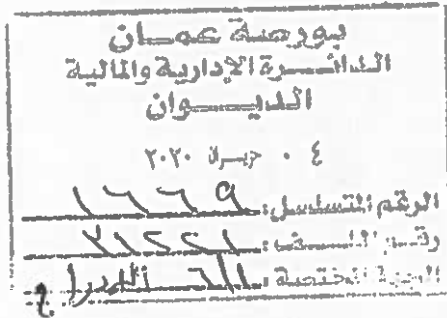 بورصة عمان
الدائرة الإدارية والمالية
الديوان
٠٤ حزيران ٢٠٢٠
الرقم المتسلسل: ١٦٦٩
رقم الملف: ٧١٢٢١
الجهة المختصة: